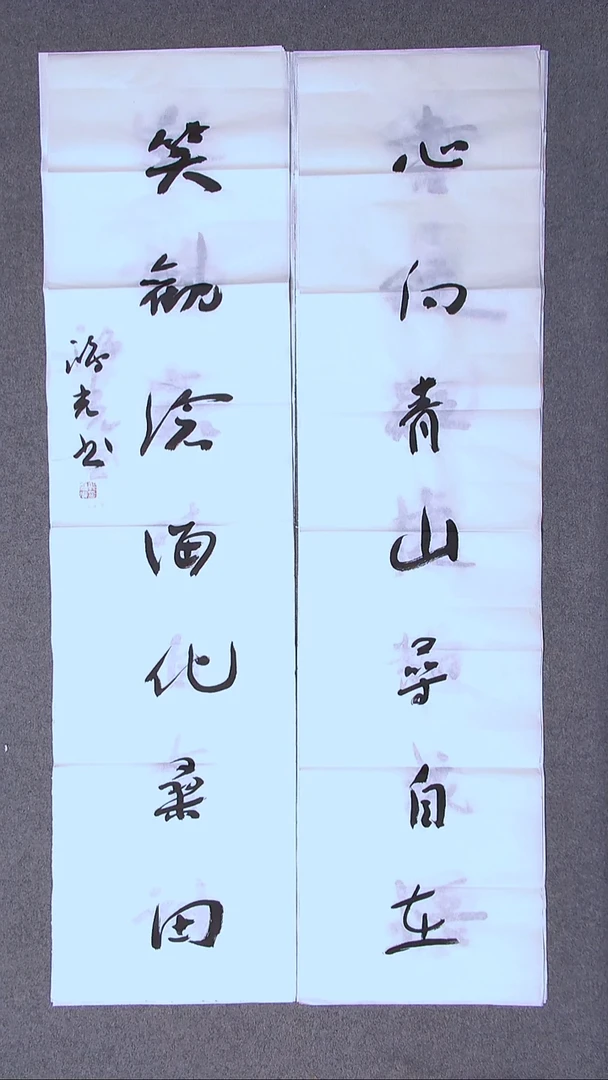 心向青山寻自在
笑观沧海化桑田
书